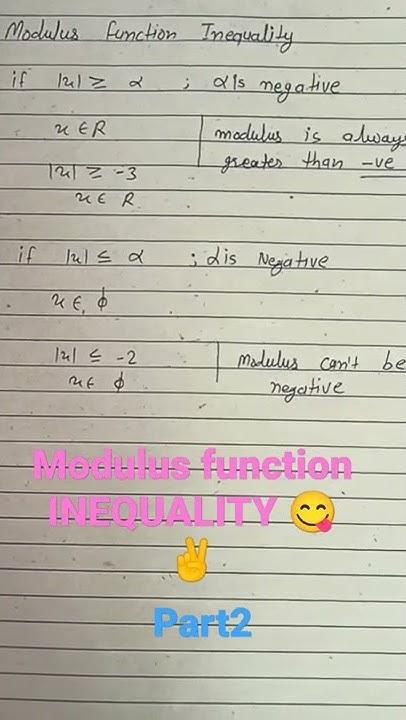 Modulus function Inequality
if |x| ≥ α ; α is negative
x ∈ R
modulus is always
greater than -ve
|x| ≥ -3
x ∈ R
if |x| ≤ α ; α is Negative
x ∈ ϕ
|x| ≤ -2
x ∈ ϕ
Modulus can't be
negative
Modulus function
INEQUALITY 😋
✌️
Part2